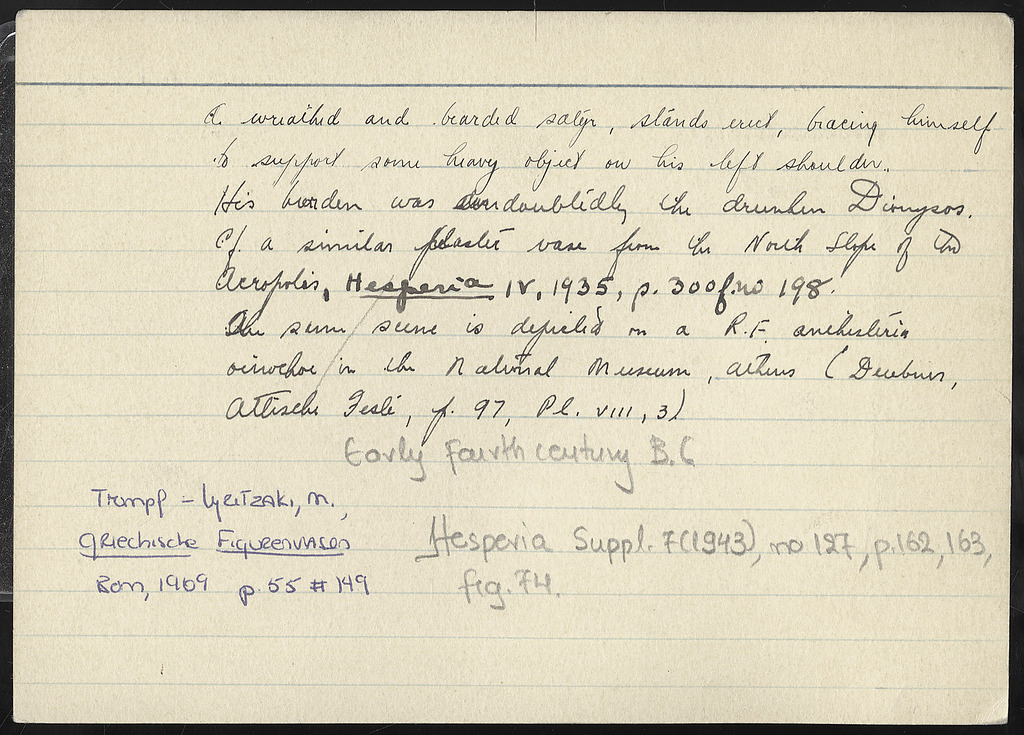 A wreathed and bearded satyr, stands erect, bracing himself
to support some heavy object on his left shoulder.
His burden was undoubtedly the drunken Dionysos.
Cf. a similar plastic vase from the North Slope of the
Acropolis, Hesperia IV, 1935, p. 300 f. no 198.
The same scene is depicted on a R.F. anthisteria
oinochoe in the National Museum, Athens (Deubner,
Attische Feste, p. 97, Pl. VIII, 3)
Early Fourth century B.C
Trumpf - Lyritzaki, M.,
Griechische Figurenvasen
Bonn, 1969 p. 55 # 149
Hesperia Suppl. 7 (1943), no 127, p. 162, 163,
fig. 74.